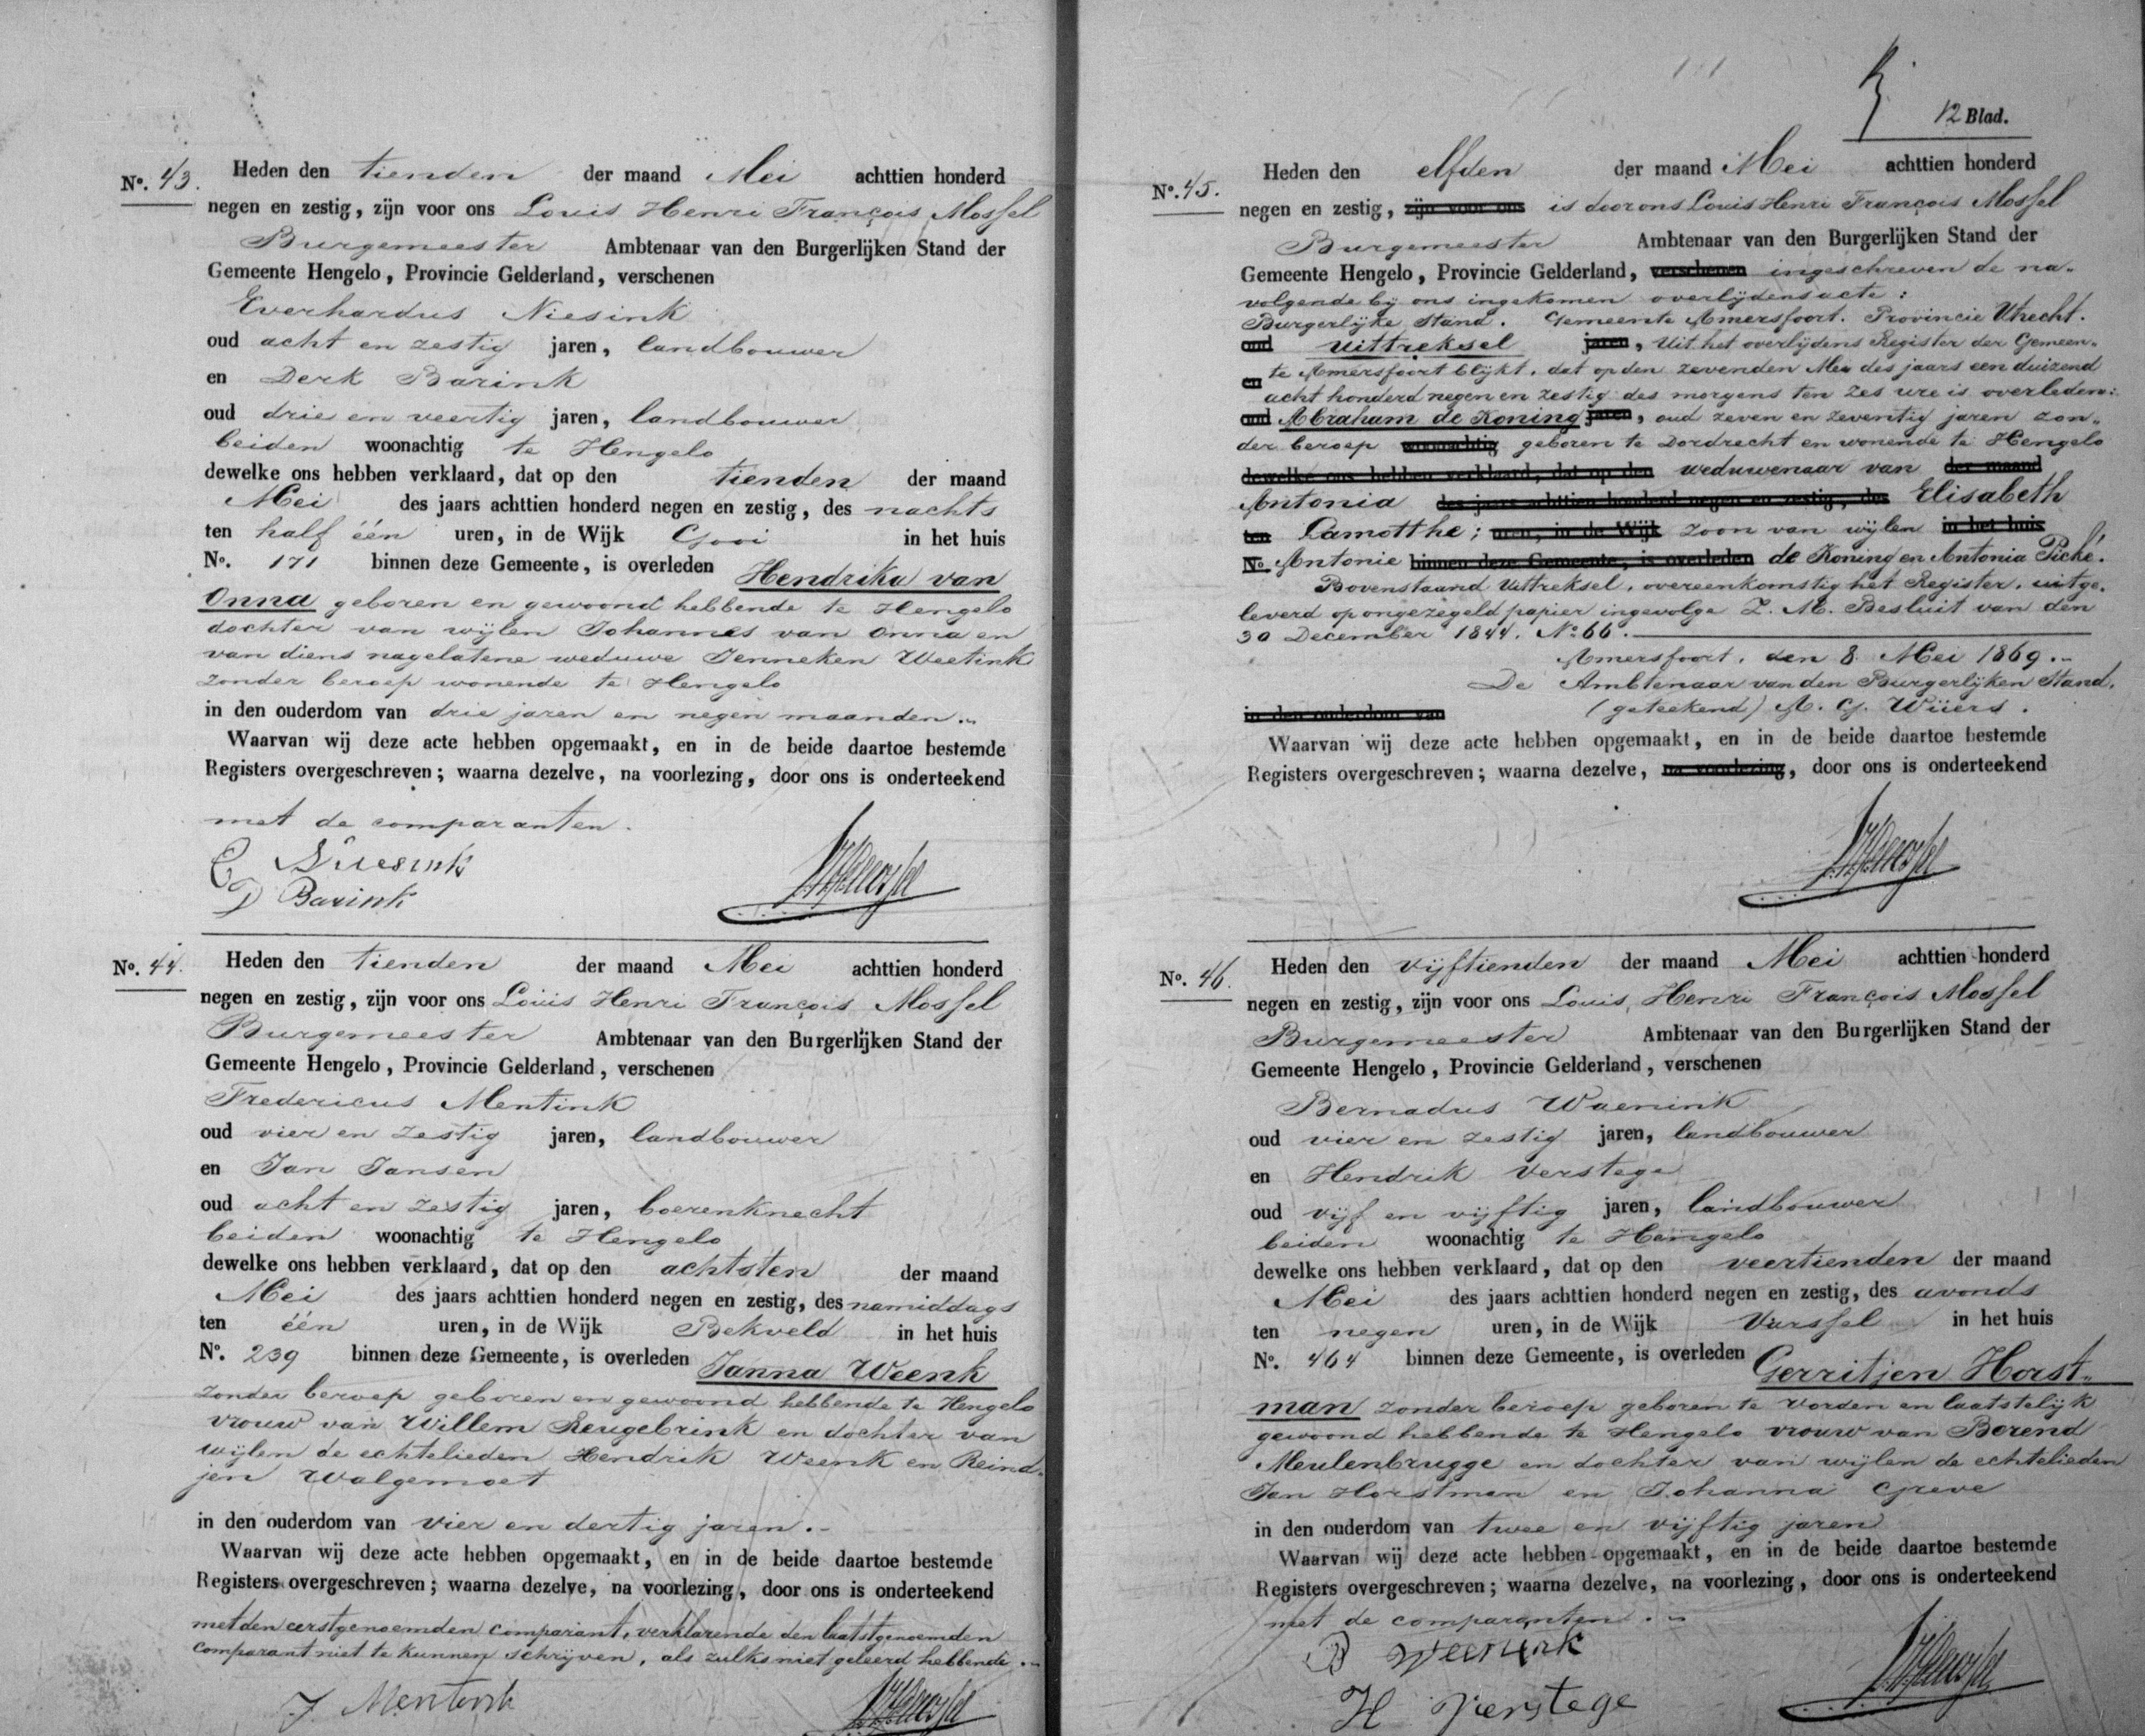 No. 43.
Heden den tienden der maand Mei achttien honderd
negen en zestig, zijn voor ons Louis Henri François Mossel
Burgemeester Ambtenaar van den Burgerlijken Stand der
Gemeente Hengelo, Provincie Gelderland, verschenen
Everhardus Niesink
oud acht en zestig jaren, landbouwer
en Derk Barink
oud drie en veertig jaren, landbouwer
beiden woonachtig te Hengelo
dewelke ons hebben verklaard, dat op den tienden der maand
Mei des jaars achttien honderd negen en zestig, des nachts
ten half één uren, in de Wijk Gooi in het huis
No. 171 binnen deze Gemeente, is overleden Hendrika van
Onna geboren en gewoond hebbende te Hengelo
dochter van wijlen Johannes van Onna en
van diens nagelatene weduwe Jenneken Weetink
zonder beroep wonende te Hengelo
in den ouderdom van drie jaren en negen maanden.
Waarvan wij deze acte hebben opgemaakt, en in de beide daartoe bestemde
Registers overgeschreven; waarna dezelve, na voorlezing, door ons is onderteekend
met de comparanten.
E Niesink
D Barink
No. 44.
Heden den tienden der maand Mei achttien honderd
negen en zestig, zijn voor ons Louis Henri François Mossel
Burgemeester Ambtenaar van den Burgerlijken Stand der
Gemeente Hengelo, Provincie Gelderland, verschenen
Fredericus Mentink
oud vier en zestig jaren, landbouwer
en Jan Jansen
oud acht en zestig jaren, boerenknecht
beiden woonachtig te Hengelo
dewelke ons hebben verklaard, dat op den achtsten der maand
Mei des jaars achttien honderd negen en zestig, des namiddags
ten één uren, in de Wijk Bekveld in het huis
No. 239 binnen deze Gemeente, is overleden Janna Weenk
zonder beroep geboren en gewoond hebbende te Hengelo
vrouw van Willem Reugebrink en dochter van
wijlen de echtelieden Hendrik Weenk en Reind-
jen Walgemoet
in den ouderdom van vier en dertig jaren.
Waarvan wij deze acte hebben opgemaakt, en in de beide daartoe bestemde
Registers overgeschreven; waarna dezelve, na voorlezing, door ons is onderteekend
met den eerstgenoemden comparant, verklarende den laatstgenoemden
comparant niet te kunnen schrijven, als zulks niet geleerd hebbende.
F. Mentink
12 Blad.
No. 45.
Heden den elfden der maand Mei achttien honderd
negen en zestig, zijn voor ons is door ons Louis Henri François Mossel
Burgemeester Ambtenaar van den Burgerlijken Stand der
Gemeente Hengelo, Provincie Gelderland, verschenen ingeschreven de na-
volgende bij ons ingekomen overlijdensacte:
Burgerlijke Stand. Gemeente Amersfoort. Provincie Utrecht.
oud Uittreksel jaren, Uit het overlijdens Register der Gemeen-
en te Amersfoort blijkt, dat op den zevenden Mei des jaars een duizend
acht honderd negen en zestig des morgens ten zes ure is overleden:
oud Abraham de Koning jaren, oud zeven en zeventig jaren zon-
der beroep woonachtig geboren te Dordrecht en wonende te Hengelo
dewelke ons hebben verklaard, dat op den weduwenaar van der maand
Antonia des jaars achttien honderd negen en zestig, des Elisabeth
ten Lamotthe; uren, in de Wijk zoon van wijlen in het huis
No. Antonie binnen deze Gemeente, is overleden de Koning en Antonia Piché.
Bovenstaand Uittreksel, overeenkomstig het Register, uitge-
leverd op ongezegeld papier ingevolge Z. M. Besluit van den
30 December 1844. No 66.
Amersfoort, den 8 Mei 1869.
De Ambtenaar van den Burgerlijken Stand,
in den ouderdom van (geteekend) A. G. Wüers.
Waarvan wij deze acte hebben opgemaakt, en in de beide daartoe bestemde
Registers overgeschreven; waarna dezelve, na voorlezing, door ons is onderteekend
No. 46.
Heden den vijftienden der maand Mei achttien honderd
negen en zestig, zijn voor ons Louis Henri François Mossel
Burgemeester Ambtenaar van den Burgerlijken Stand der
Gemeente Hengelo, Provincie Gelderland, verschenen
Bernadus Waenink
oud vier en zestig jaren, landbouwer
en Hendrik Verstege
oud vijf en vijftig jaren, landbouwer
beiden woonachtig te Hengelo
dewelke ons hebben verklaard, dat op den veertienden der maand
Mei des jaars achttien honderd negen en zestig, des avonds
ten negen uren, in de Wijk Varssel in het huis
No. 464 binnen deze Gemeente, is overleden Gerritjen Horst-
man zonder beroep geboren te Vorden en laatstelijk
gewoond hebbende te Hengelo vrouw van Berend
Meulenbrugge en dochter van wijlen de echtelieden
Jan Horstman en Johanna Greve
in den ouderdom van twee en vijftig jaren
Waarvan wij deze acte hebben opgemaakt, en in de beide daartoe bestemde
Registers overgeschreven; waarna dezelve, na voorlezing, door ons is onderteekend
met de comparanten.
B Weenink
H Verstege